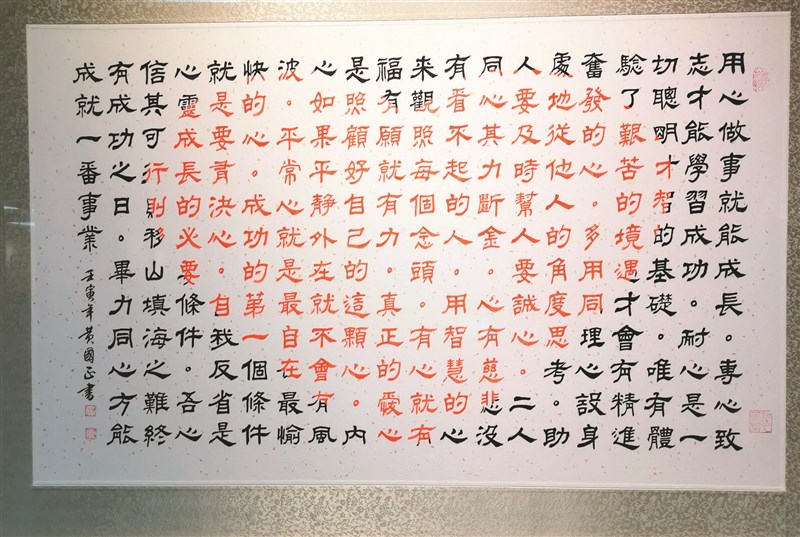 用心做事就能成長。專心致
志才能學習成功。耐心是一
切聰明才智的基礎。唯有體
驗了艱苦的境遇才會有精進
奮發的心。多用同理心設身
處地從他人的角度思考。助
人要及時幫人要誠心。二人
同心其力斷金。心有慈悲沒
有看不起的人。用智慧的心
来觀照每個念頭。有心就有
福有願就有力。真正的愛心
是照顧好自己的這顆心。內
心如果平靜外在就不會有風
波。平常心就是最自在最愉
快的心。成功的第一個條件
就是要有決心。自我反省是
心靈成長的必要條件。吾心
信其可行則移山填海之難終
有成功之日。畢力同心方能
成就一番事業
壬寅年黄國正書